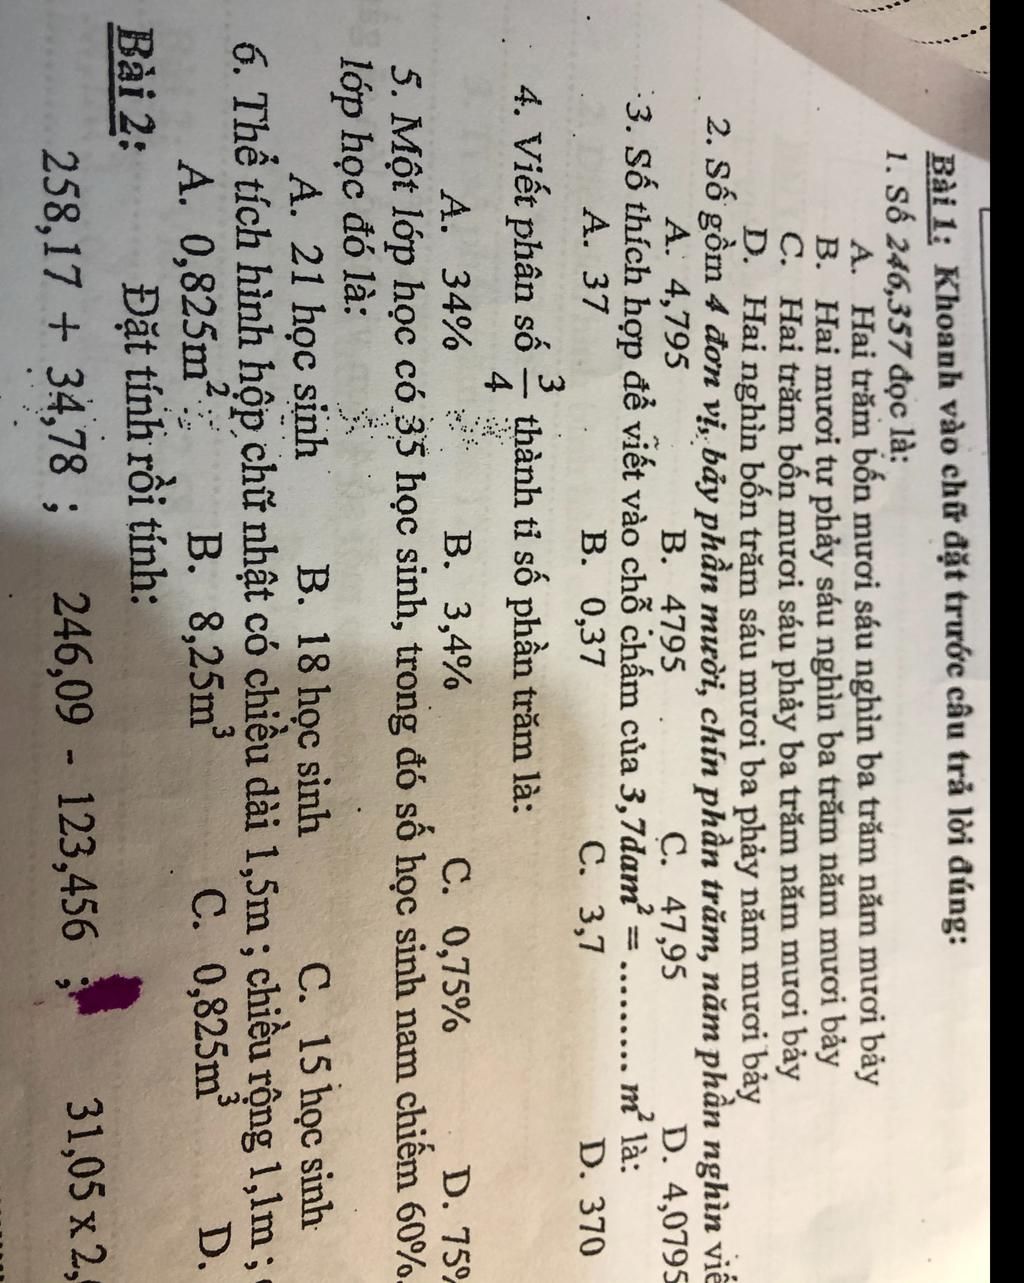 Bài 1: Khoanh vào chữ đặt trước câu trả lời đúng:
1. Số 246,357 đọc là:
A. Hai trăm bốn mươi sáu nghìn ba trăm năm mươi bảy
B. Hai mươi tư phảy sáu nghìn ba trăm năm mươi bảy
C. Hai trăm bốn mươi sáu phảy ba trăm năm mươi bảy
D. Hai nghìn bốn trăm sáu mươi ba phảy năm mươi bảy
2. Số gồm 4 đơn vị, bảy phần mười, chín phần trăm, năm phần nghìn viế
A. 4,795 B. 4795 C. 47,95 D. 4,0795
3. Số thích hợp để viết vào chỗ chấm của 3,7dam² = ......... m² là:
A. 37 B. 0,37 C. 3,7 D. 370
4. Viết phân số 3/4 thành tỉ số phần trăm là:
A. 34% B. 3,4% C. 0,75% D. 75%
5. Một lớp học có 35 học sinh, trong đó số học sinh nam chiếm 60%.
lớp học đó là:
A. 21 học sinh B. 18 học sinh C. 15 học sinh
6. Thể tích hình hộp chữ nhật có chiều dài 1,5m ; chiều rộng 1,1m ;
A. 0,825m² B. 8,25m³ C. 0,825m³ D.
Bài 2: Đặt tính rồi tính:
258,17 + 34,78 ; 246,09 - 123,456 ; 31,05 x 2,